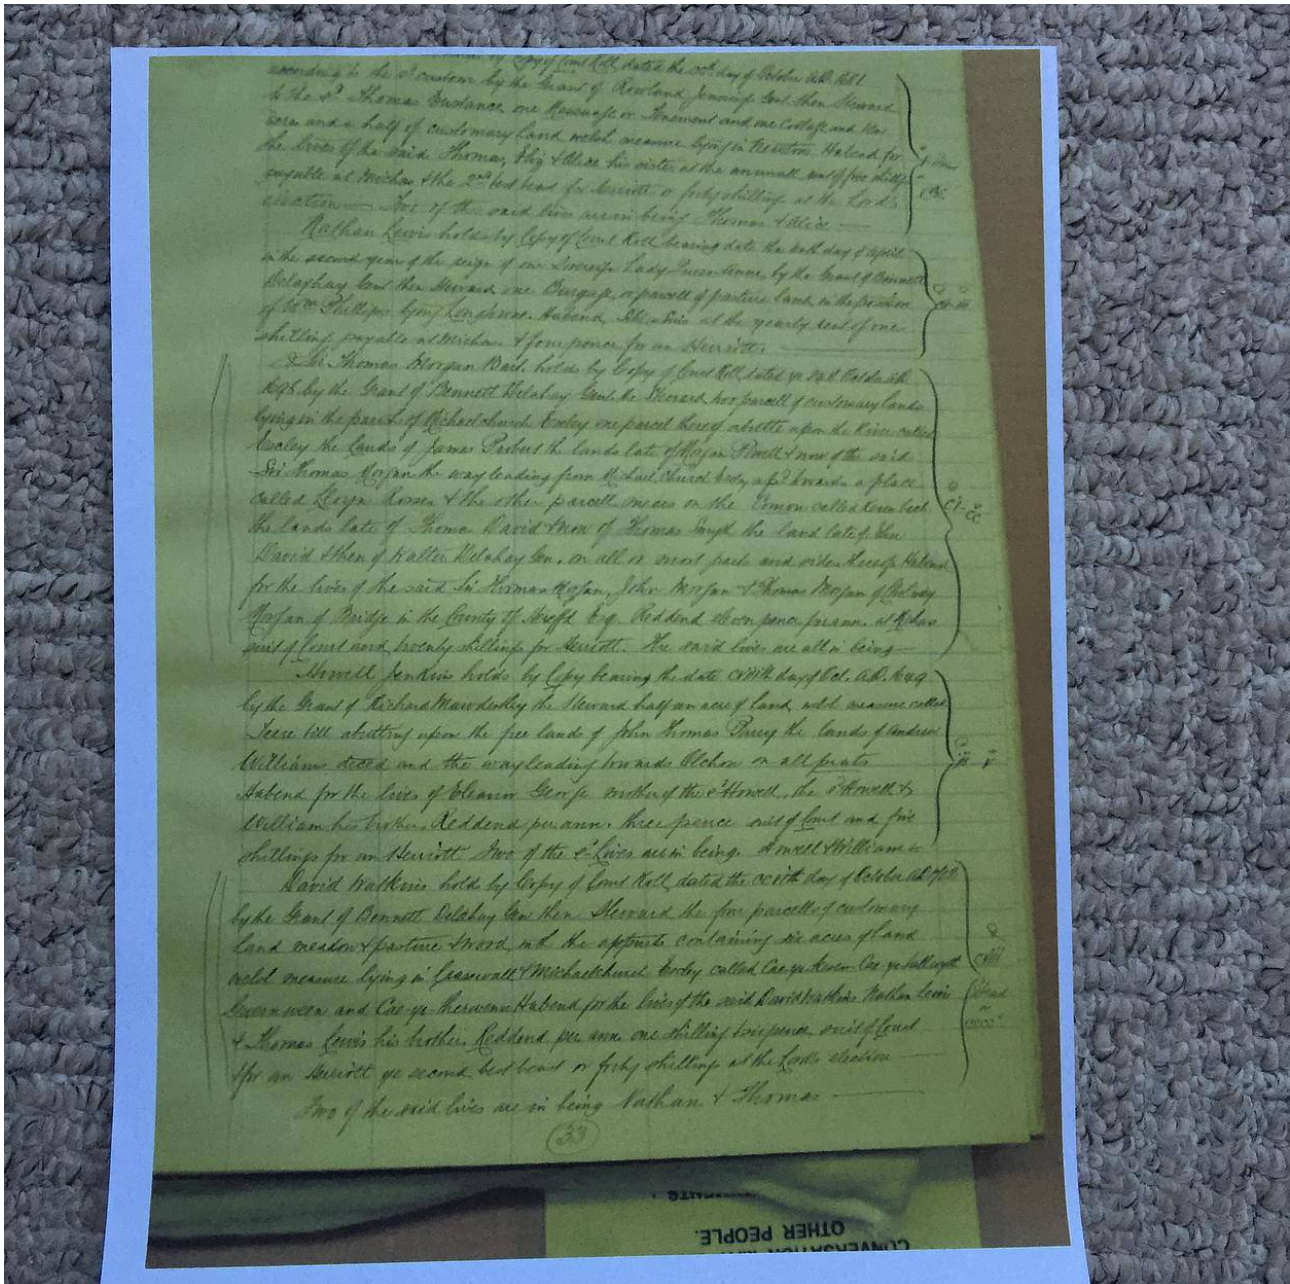 by Copy of Court Roll, dated the day of October A.D. 1681
according to the sd custom by the Grant of Rowland Jennings Gent then Steward
to the sd Thomas Eustance one Messuage or Tenement and one Cottage and
acre and a half of customary land welsh measure lying in Newton Habend for
the lives of the said Thomas, Eliz & Alice his sister at the annuall rent of five shillgs
payable at Michas & the 2nd best beast for Herriott or forty shillings at the Lord's
election — Two of the said lives are in being Thomas & Alice —
Nathan Lewis holds by Copy of Court Roll bearing date the day of April
in the second year of the reign of our Sovereign Lady Queen Anne by the Grant of Bennett
Delaghay Gent then Steward one Burgage, or parcell of pasture land, in the possession
of Wm Phillips lying Habend at the yearly rent of one
shilling payable at Michas & four pence for an Herriott.
Sir Thomas Morgan Bart. holds by Copy of Court Roll, dated ye October A.D.
1698 by the Grant of Bennett Delahay Gent. the Steward two parcell of customary lands
lying in the parish of Michaelchurch Escley one parcel thereof abutte upon the River called
Escley the Lands of James Parbert the lands late of Morgan Powell & now of the said
Sir Thomas Morgan the way leading from Michael Church Escley a psd towards a place
called Lloyn Rosser & the other parcell meres on the Comon called
the lands late of Thomas David & now of Thomas the land late of
David & then of Walter Delahay Gen. on all or most parts and sides thereof Habend
for the lives of the said Sir Thomas Morgan, John Morgan & Thomas Morgan of
Morgan of Bridge in the County of Hereffd Esq. Reddend eleven pence per ann. at Michas
suit of Court and twenty shillings for Herriott. The said lives are all in being —
Howell Jenkins holds by Copy bearing the date day of Oct. A.D. 1649
by the Grant of Richard Mawdestley the Steward half an acre of land, welsh measure called
Teere bill abutting upon the free lands of John Thomas Parry the lands of Andrew
Williams deced and the way leading towards Olchon on all parts
Habend for the lives of Eleanor George mother of the sd Howell, the sd Howell &
William his brother Reddend per ann. three pence suit of Court and five
shillings for an Herriott Two of the sd Lives are in being. Howell & William
David Watkins hold by Copy of Court Roll, dated the day of October A.D.
by the Grant of Bennett Delahay Gen then Steward the four parcells of customary
land meadow & pasture & wood with the appurts containing six acres of land
welsh measure lying in Crasswall & Michaelchurch Escley called
and Cae-ye- Habend for the lives of the said David Watkins Nathan Lewis
& Thomas Lewis his brother Reddend per ann. one shilling & sixpence suit of Court
& for an Herriott ye second best beast or forty shillings at the Lords election —
Two of the said lives are in being Nathan & Thomas —
33
OTHER PEOPLE.